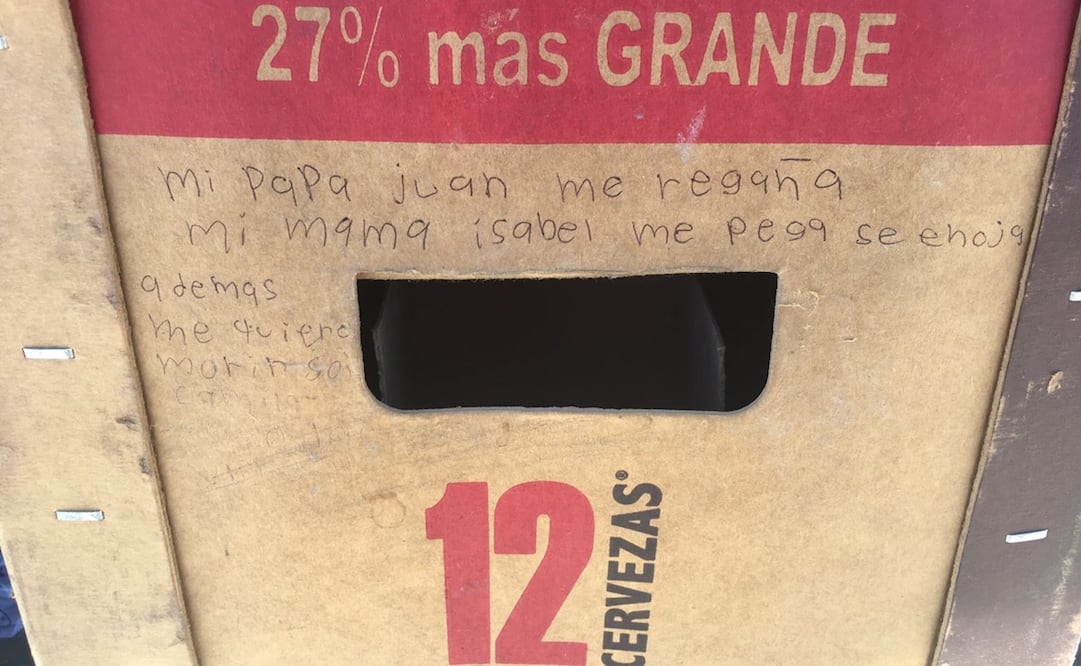 27% más GRANDE
mi papa juan me regaña
mi mama isabel me pega se enoja
ademas
me quiere
morir soi
camila
12
CERVEZAS